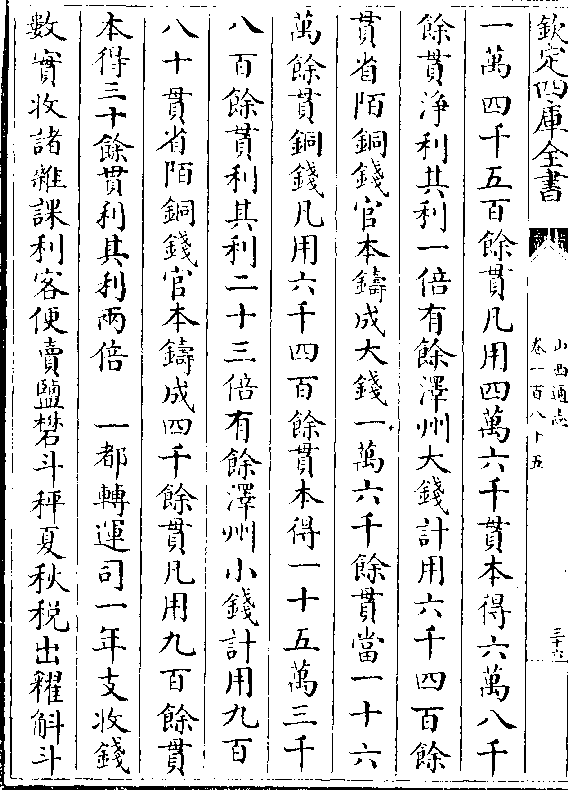 欽定四庫全書
山西通志
卷一百八十五
三十六
一萬四千五百餘貫凡用四萬六千貫本得六萬八千
餘貫淨利其利一倍有餘澤州大錢計用六千四百餘
貫省陌銅錢官本鑄成大錢一萬六千餘貫當一十六
萬餘貫銅錢凡用六千四百餘貫本得一十五萬三千
八百餘貫利其利二十三倍有餘澤州小錢計用九百
八十貫省陌銅錢官本鑄成四千餘貫凡用九百餘貫
本得三十餘貫利其利兩倍　一都轉運司一年支收錢
數實收諸雜課利客便賣鹽礬斗秤夏秋税出糴斛斗